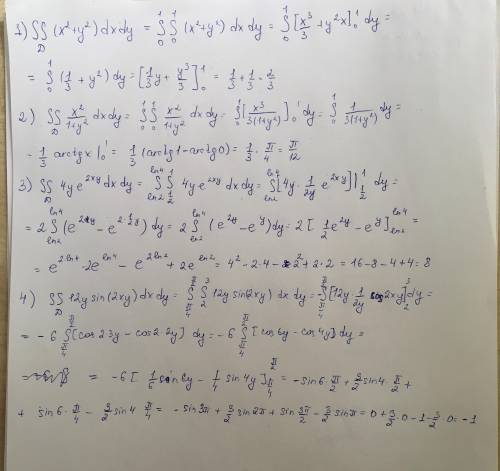 1) ∬_D (x²+y²) dx dy = ∫₀¹ ∫₀¹ (x²+y²) dx dy = ∫₀¹ [x³/3 + y²x]₀¹ dy =
= ∫₀¹ (1/3 + y²) dy = [1/3 y + y³/3]₀¹ = 1/3 + 1/3 = 2/3
2) ∬_D x²/(1+y²) dx dy = ∫₀¹ ∫₀¹ x²/(1+y²) dx dy = ∫₀¹ [x³/(3(1+y²))]₀¹ dy = ∫₀¹ 1/(3(1+y²)) dy =
= 1/3 arctg x |₀¹ = 1/3 (arctg 1 - arctg 0) = 1/3 · π/4 = π/12
3) ∬_D 4y e^(2xy) dx dy = ∫_(ln2)^(ln4) ∫_(1/2)^1 4y e^(2xy) dx dy = ∫_(ln2)^(ln4) [4y · 1/(2y) e^(2xy)] |_(1/2)^1 dy =
= 2 ∫_(ln2)^(ln4) (e^(2·1y) - e^(2·1/2 y)) dy = 2 ∫_(ln2)^(ln4) (e^(2y) - e^y) dy = 2 [1/2 e^(2y) - e^y]_(ln2)^(ln4) =
= e^(2ln4) - 2e^(ln4) - e^(2ln2) + 2e^(ln2) = 4² - 2·4 - 2² + 2·2 = 16 - 8 - 4 + 4 = 8
4) ∬_D 12y sin(2xy) dx dy = ∫_(π/4)^(π/2) ∫₂³ 12y sin(2xy) dx dy = ∫_(π/4)^(π/2) [12y · 1/(2y) cos 2xy]₂³ dy =
= -6 ∫_(π/4)^(π/2) [cos 2·3y - cos 2·2y] dy = -6 ∫_(π/4)^(π/2) [cos 6y - cos 4y] dy =
= -6 [1/6 sin 6y - 1/4 sin 4y]_(π/4)^(π/2) = -sin 6·π/2 + 3/2 sin 4·π/2 +
+ sin 6·π/4 - 3/2 sin 4·π/4 = -sin 3π + 3/2 sin 2π + sin 3π/2 - 3/2 sin π = 0 + 3/2·0 - 1 - 3/2·0 = -1